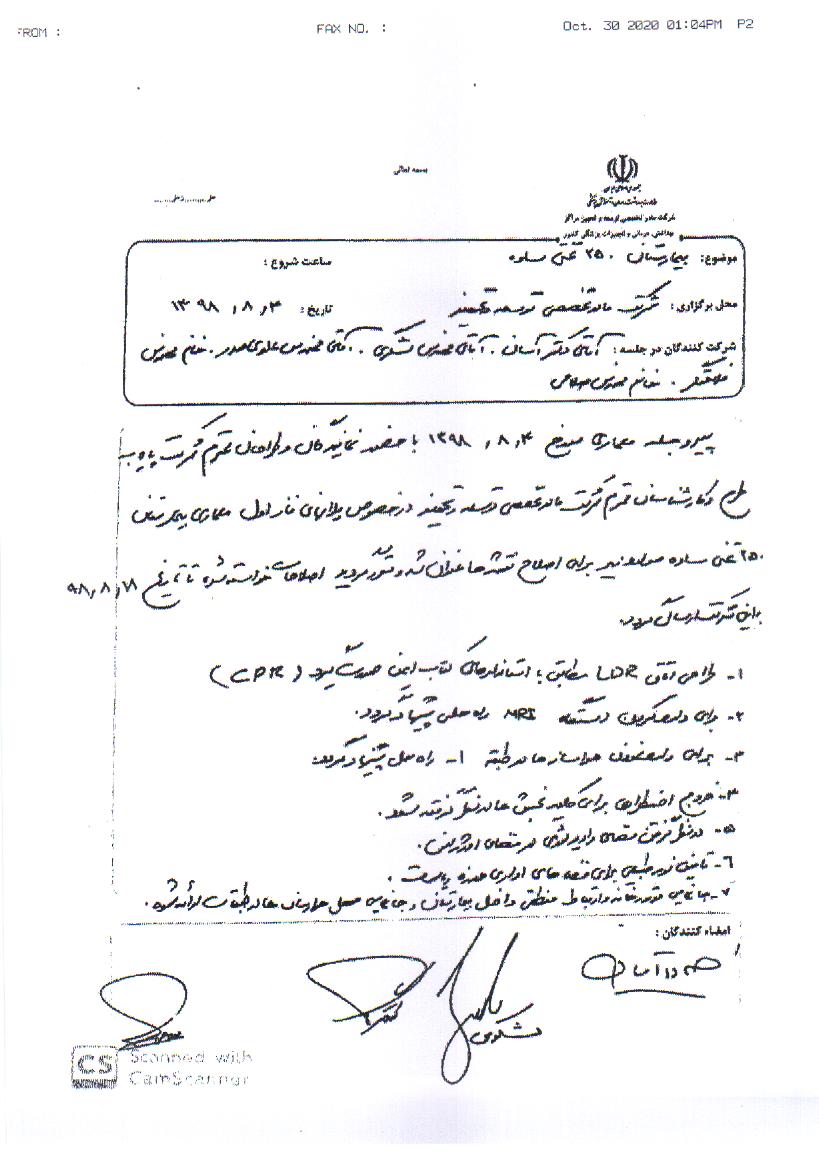 FROM :
FAX NO. :
Oct. 30 2020 01:04PM P2
بسمه تعالی
شرکت مادر تخصصی توسعه و تجهیز مراکز
بهداشتی، درمانی و تجهیزات پزشکی کشور
موضوع: بیمارستان ۲۵۰ تختی ساوه
ساعت شروع :
محل برگزاری : شرکت مادر تخصصی توسعه و تجهیز
تاریخ : ۱۳۹۸/۸/۴
شرکت کنندگان در جلسه : آقای دکتر آسائی . آقای مهندس لشگری . آقای مهندس علوی صدر . خانم مهندس
خانم مهندس صلاحی
پیرو جلسه معماری مورخ ۱۳۹۸/۸/۴ با حضور نمایندگان و طراحان محترم شرکت پارس
طرح و کارشناسان محترم شرکت مادر تخصصی توسعه و تجهیز در خصوص پلانهای فاز اول معماری بیمارستان
۲۵۰ تختی ساوه موارد زیر برای اصلاح نقشه ها عنوان شد و مقرر گردید اصلاحات خواسته شده تا تاریخ ۹۸/۸/۱۱
به این شرکت ارسال گردد.
۱- طراحی اتاق LDR مطابق با استانداردهای کتاب ایمن صورت گیرد (LDR)
۲- برای وارد کردن دستگاه MRI راه حلی پیشنهاد گردد.
۳- برای وارد نمودن هواسازها در طبقه ۱- راه حل پیشنهاد گردد.
۴- خروج اضطراری برای کلیه بخش ها در نظر گرفته شود.
۵- در نظر گرفتن فضای رادیولوژی در فضای اورژانس.
۶- تأمین نور طبیعی برای فضاهای اداری
۷- جانمایی و ارتباط منطقی داخل بیمارستان و جانمایی محل هوارسان ها در طبقات ارائه شود.
امضاء کنندگان :
لشگری
CS Scanned with
CamScanner